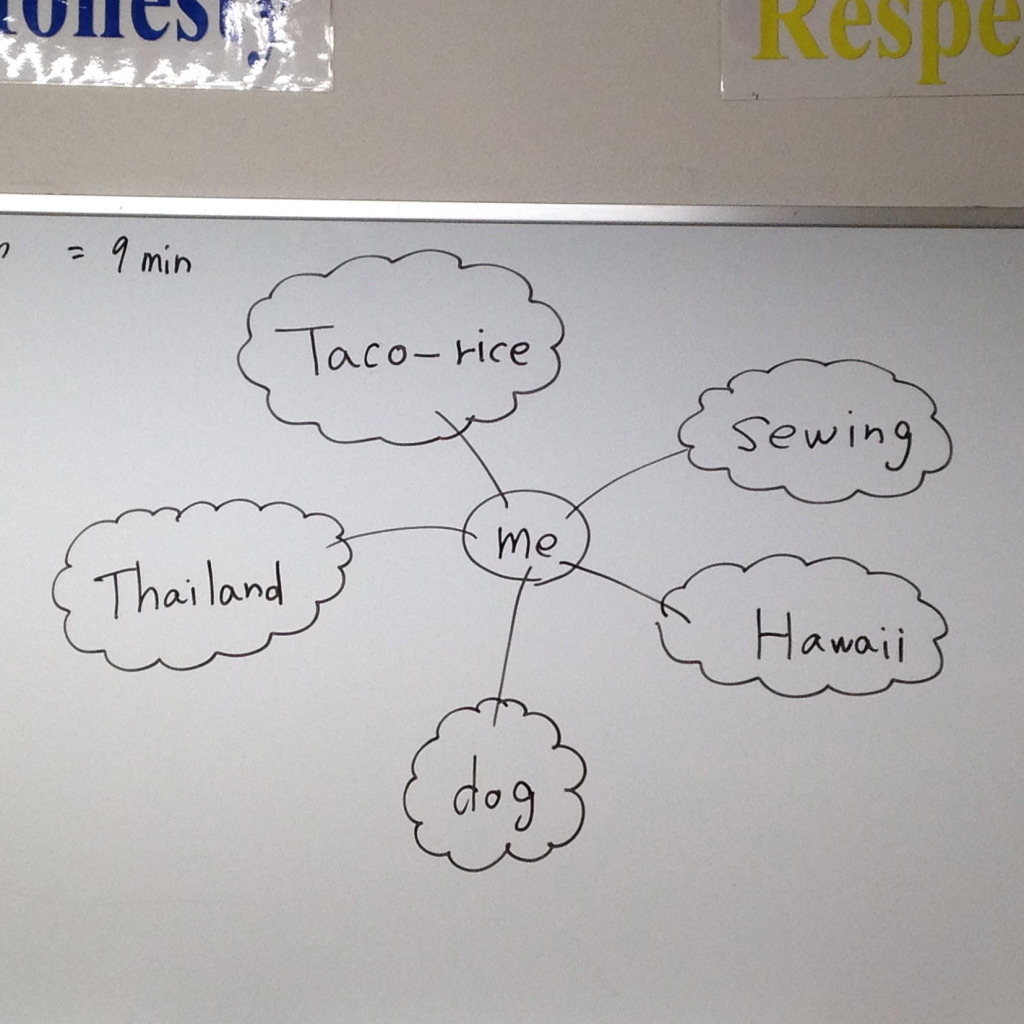 Honesty
Respe
= 9 min
Taco-rice
sewing
me
Thailand
Hawaii
dog